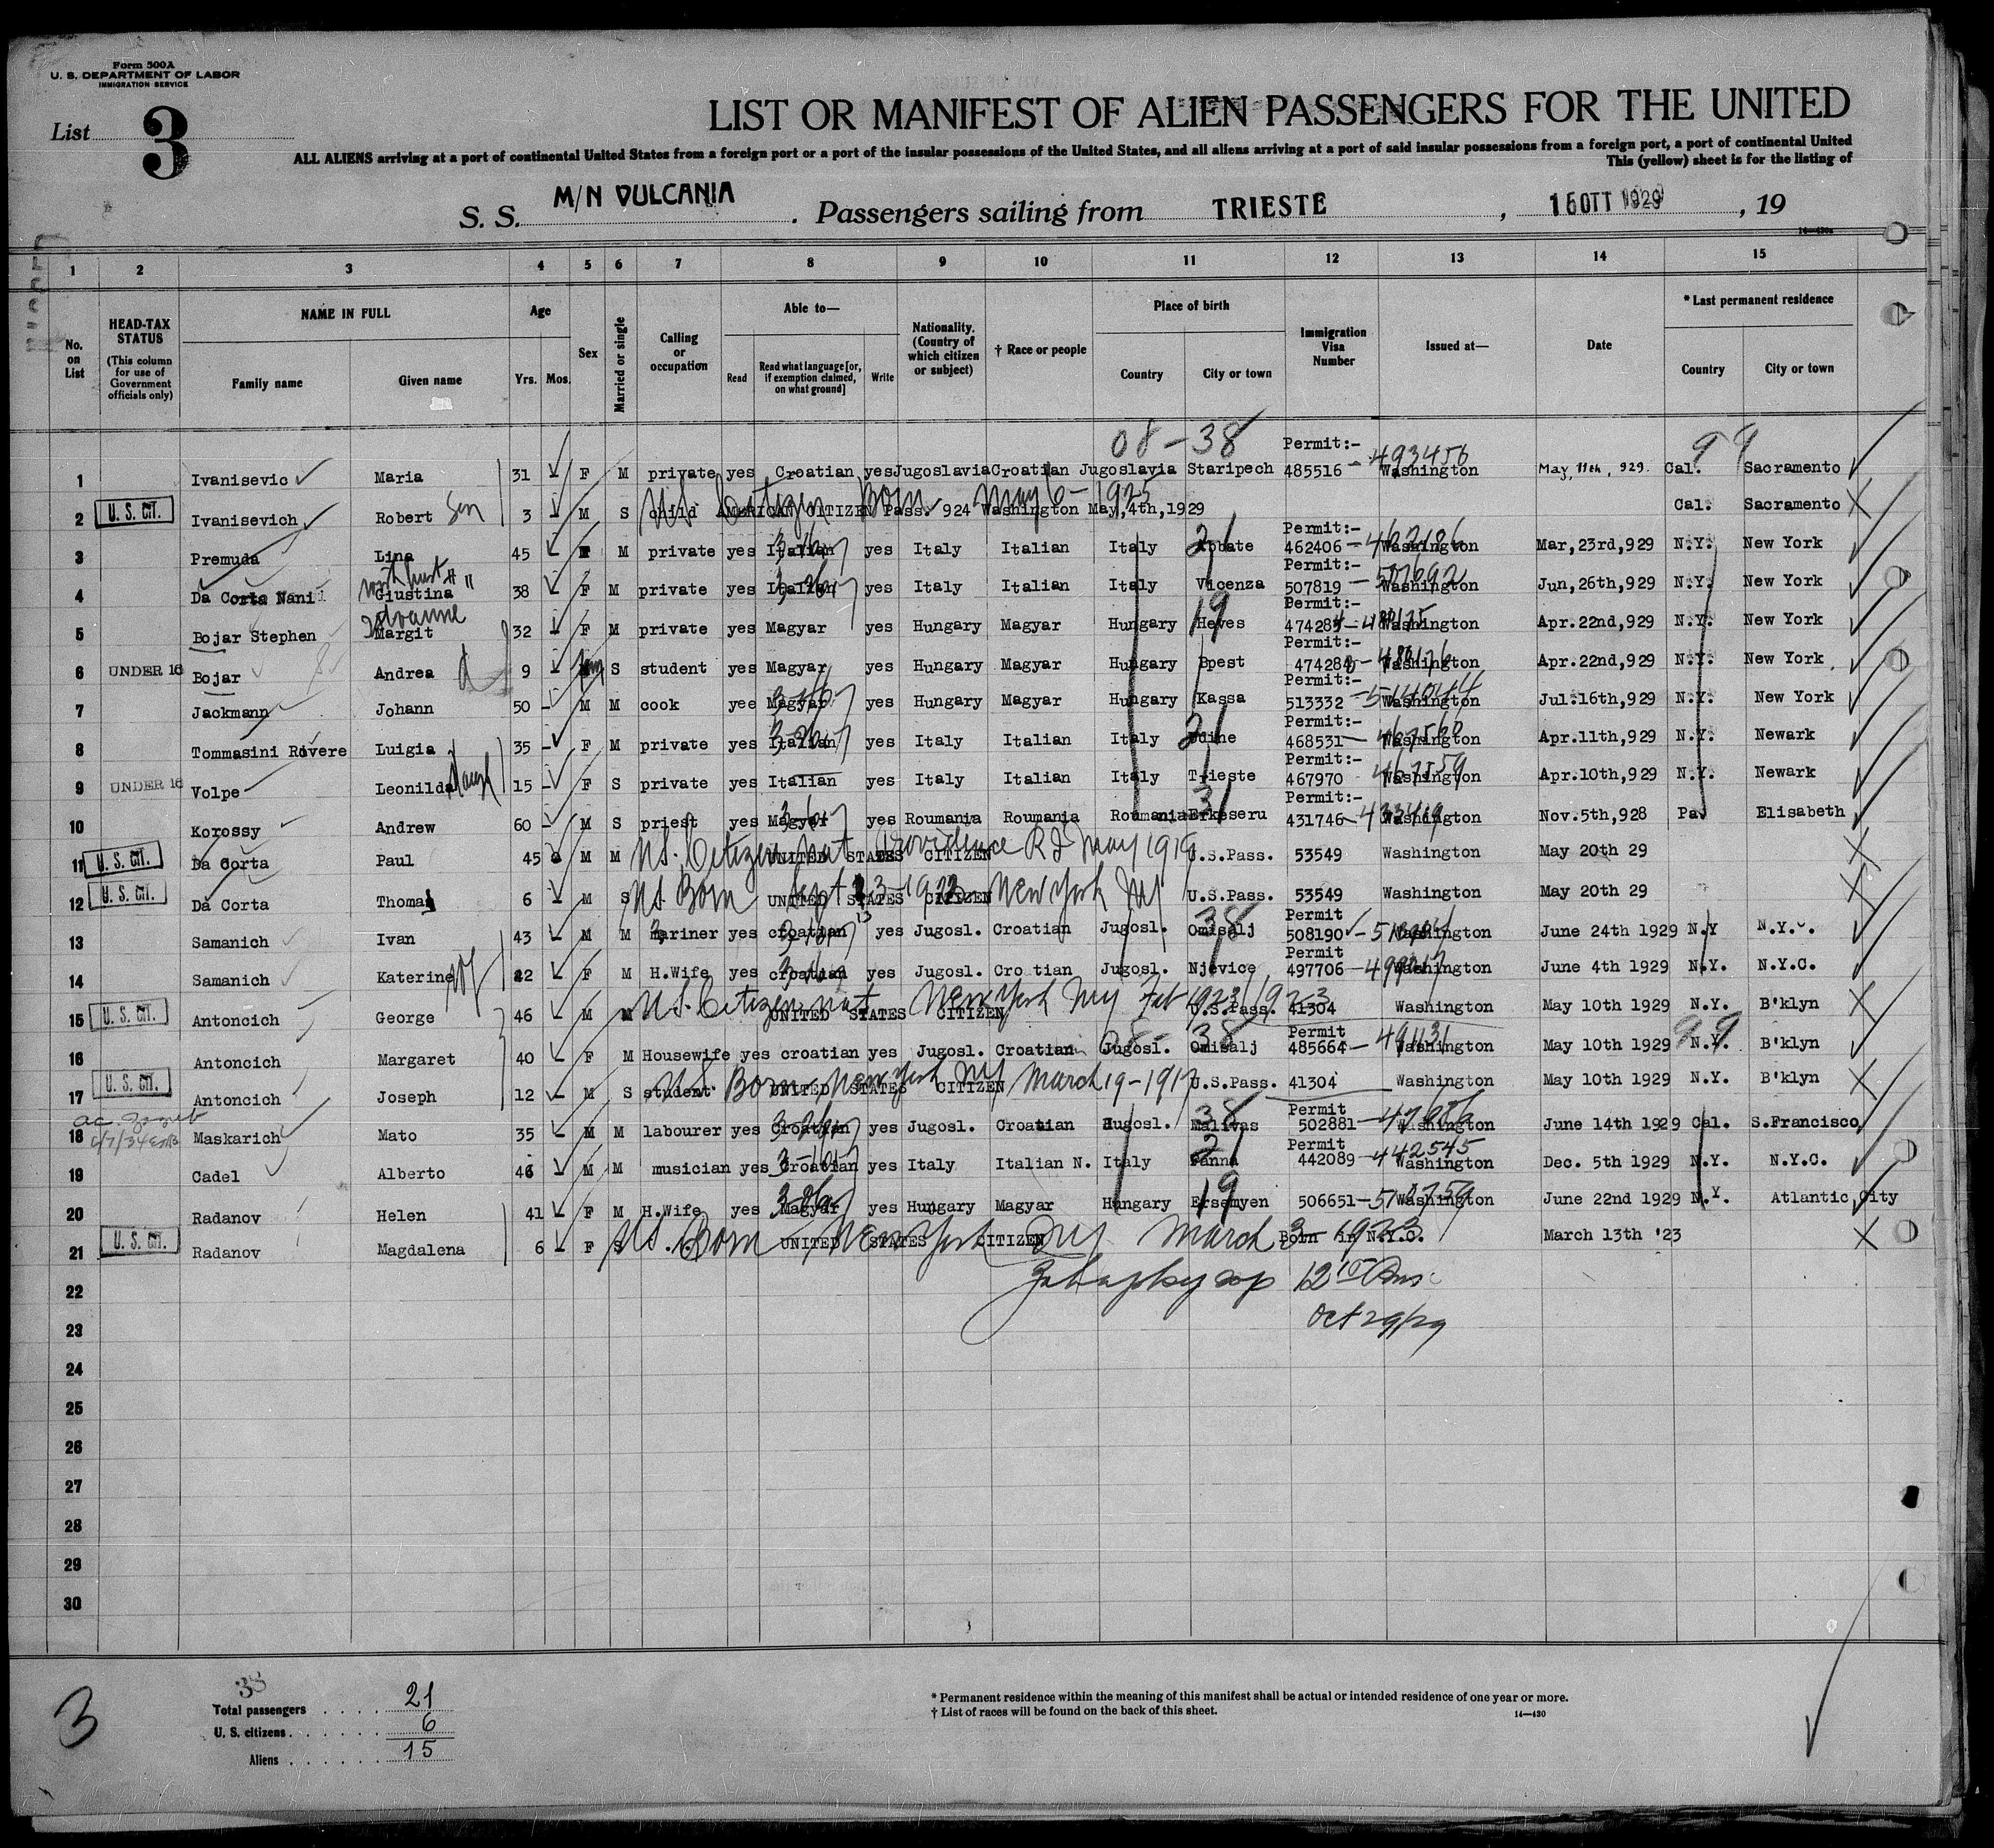 Form 500A
U. S. DEPARTMENT OF LABOR
IMMIGRATION SERVICE
List 3
LIST OR MANIFEST OF ALIEN PASSENGERS FOR THE UNITED
ALL ALIENS arriving at a port of continental United States from a foreign port or a port of the insular possessions of the United States, and all aliens arriving at a port of said insular possessions from a foreign port, a port of continental United
This (yellow) sheet is for the listing of
S. S. M/N VULCANIA . Passengers sailing from TRIESTE , 16 OTT 1929 , 19
1 2 3 4 5 6 7 8 9 10 11 12 13 14 15
No. on List
HEAD-TAX STATUS (This column for use of Government officials only)
NAME IN FULL Family name Given name
Age Yrs. Mos.
Sex
Married or single
Calling or occupation
Able to— Read Read what language [or, if exemption claimed, on what ground] Write
Nationality. (Country of which citizen or subject)
† Race or people
Place of birth Country City or town
Immigration Visa Number
Issued at—
Date
* Last permanent residence Country City or town
08-38 Permit:- 493456 99
1 Ivanisevic Maria 31 F M private yes Croatian yes Jugoslavia Croatian Jugoslavia Staripech 485516 Washington May, 11th, 929. Cal. Sacramento
2 U. S. CIT. Ivanisevich Robert Son 3 M S child AMERICAN CITIZEN Pass. 924 Washington May,4th,1929 Cal. Sacramento
US Citizen Born May 6-1925
Permit:-
3 Premuda Lina 45 M private yes Italian yes Italy Italian Italy 462406 Washington Mar,23rd,929 N.Y. New York
Permit:-
4 Da Corta Nani Giustina 38 F M private yes Italian yes Italy Italian Italy Vicenza 507819 Washington Jun,26th,929 N.Y. New York
Permit:-
5 Bojar Stephen Margit 32 F M private yes Magyar yes Hungary Magyar Hungary Heves Washington Apr.22nd,929 N.Y. New York
Permit:-
6 UNDER 16 Bojar Andrea 9 S student yes Magyar yes Hungary Magyar Hungary Bpest Washington Apr.22nd,929 N.Y. New York
Permit:-
7 Jackmann Johann 50 M M cook yee Magyar yes Hungary Magyar Hungary Kassa 513332 Washington Jul.16th,929 N.Y. New York
Permit:-
8 Tommasini Rovere Luigia 35 F M private yes Italian yes Italy Italian Italy Udine 468531 Washington Apr.11th,929 N.Y. Newark
Permit:-
9 UNDER 16 Volpe Leonilda daugh 15 F S private yes Italian yes Italy Italian Italy Trieste 467970 Washington Apr.10th,929 N.Y. Newark
Permit:-
10 Korossy Andrew 60 M S priest yes Magyar yes Roumania Roumania Roumania Erkeseru 431746 Washington Nov.5th,928 Pa. Elisabeth
11 U. S. CIT. Da Corta Paul 45 M M UNITED STATES CITIZEN U.S.Pass. 53549 Washington May 20th 29
US. Citizen nat Providence RI May 1919
12 U. S. CIT. Da Corta Thomas 6 M S UNITED STATES CITIZEN U.S.Pass. 53549 Washington May 20th 29
US. Born Sept 1922 New York NY
Permit
13 Samanich Ivan 43 M M mariner yes croatian yes Jugosl. Croatian Jugosl. Omisalj 508190 Washington June 24th 1929 N.Y N.Y.C.
Permit
14 Samanich Katerine 42 F M H.Wife yes croatian yes Jugosl. Croatian Jugosl. Njevice 497706 Washington June 4th 1929 N.Y. N.Y.C.
15 U. S. CIT. Antoncich George 46 M M UNITED STATES CITIZEN U.S.Pass. 41304 Washington May 10th 1929 N.Y. B'klyn
US Citizen nat New York NY Feb 1923
Permit
16 Antoncich Margaret 40 F M Housewife yes croatian yes Jugosl. Croatian Jugosl. Omisalj 485664 - 491131 Washington May 10th 1929 N.Y. B'klyn
17 U. S. CIT. Antoncich Joseph 12 M S student UNITED STATES CITIZEN U.S.Pass. 41304 Washington May 10th 1929 N.Y. B'klyn
US. Born New York NY March 19-1917
Permit
18 Maskarich Mato 35 M M labourer yes Croatian yes Jugosl. Croatian Jugosl. Malivas 502881 Washington June 14th 1929 Cal. S.Francisco
Permit
19 Cadel Alberto 46 M M musician yes Croatian yes Italy Italian N. Italy Fanna 442089 - 442545 Washington Dec. 5th 1929 N.Y. N.Y.C.
20 Radanov Helen 41 F M H.Wife yes Magyar yes Hungary Magyar Hungary Ersemyen 506651 Washington June 22nd 1929 N.Y. Atlantic City
21 U. S. CIT. Radanov Magdalena 6 F S UNITED STATES CITIZEN Born in N.Y.C. March 13th '23
US. Born New York NY March 3-1923
22
Oct 29/29
23
24
25
26
27
28
29
30
3
38
Total passengers . . . . 21
U. S. citizens . . . . . . 6
Aliens . . . . . . 15
* Permanent residence within the meaning of this manifest shall be actual or intended residence of one year or more.
† List of races will be found on the back of this sheet.
14—430